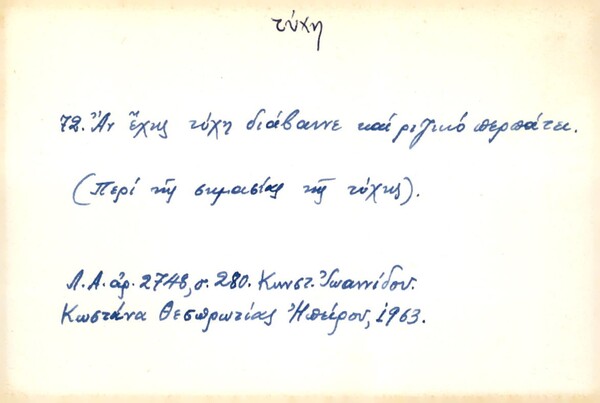 τύχη
72. Ἄν ἔχῃς τύχη διάβαινε καί ριζικό περπάτει.
(Περί τῆς σημασίας τῆς τύχης).
Λ.Α. ἀρ. 2748, σ. 280. Κωνστ. Ἰωαννίδου.
Κωστάνα Θεσπρωτίας Ἠπείρου, 1963.